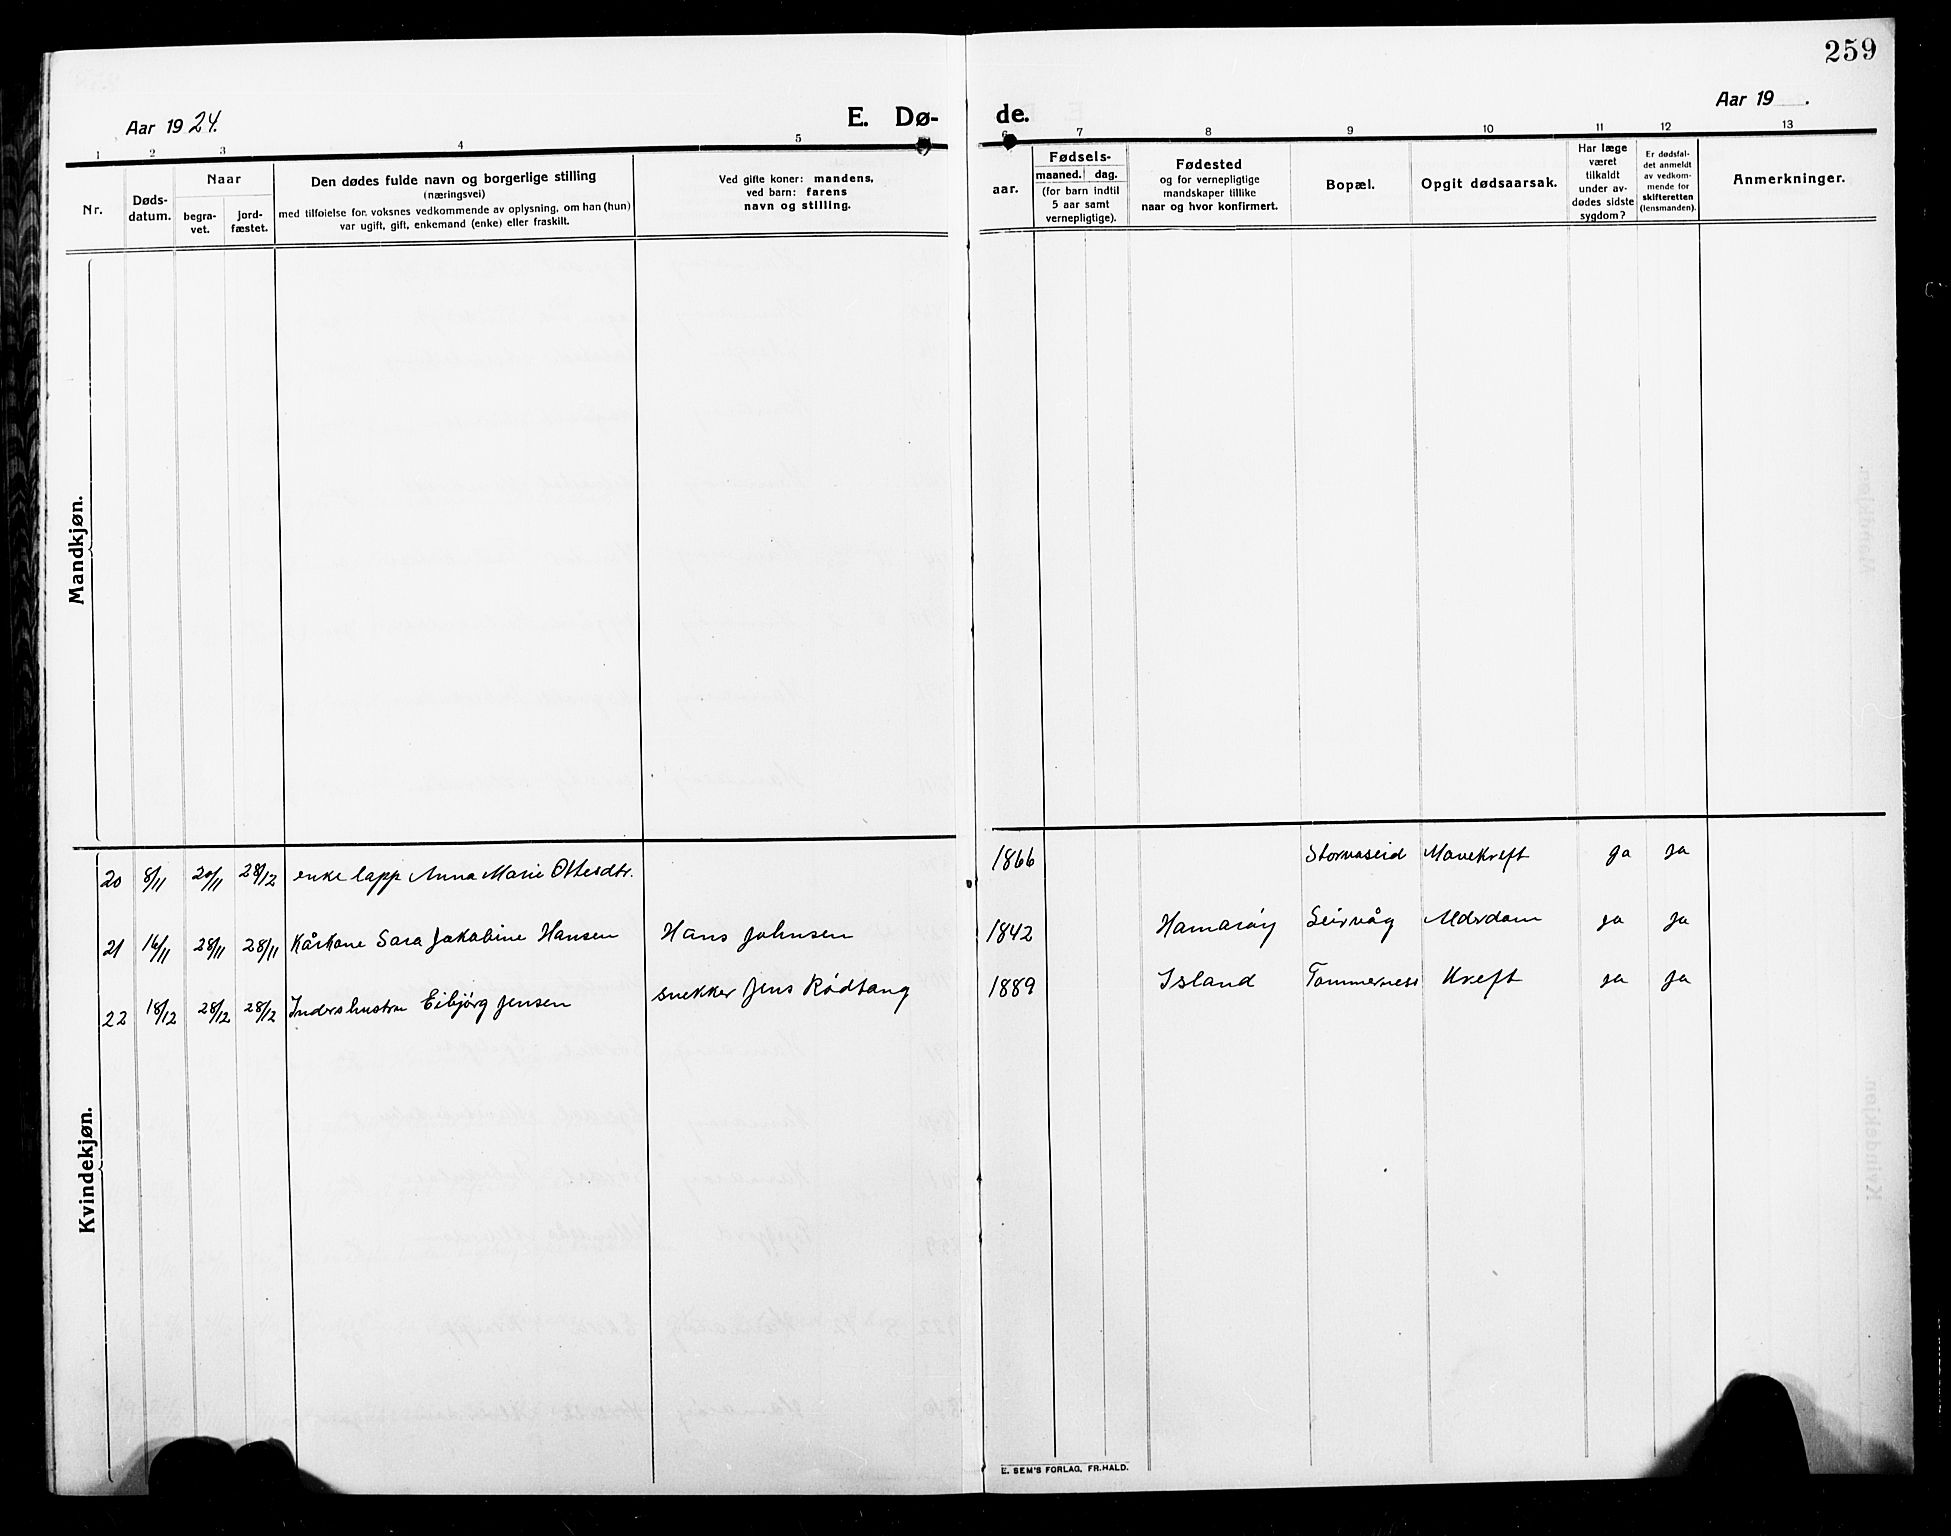 259
Aar 1924.
E. Dø-
de.
Aar 19 .
1 2 3 4 5 6 7 8 9 10 11 12 13
Nr.
Døds-
datum.
Naar
begra-
vet.
jord-
fæstet.
Den dødes fulde navn og borgerlige stilling
(næringsvei)
med tilføielse for voksnes vedkommende av oplysning, om han (hun)
var ugift, gift, enkemand (enke) eller fraskilt.
Ved gifte koner: mandens,
ved barn: farens
navn og stilling.
aar.
Fødsels-
maaned. dag.
(for barn indtil
5 aar samt
vernepligtige).
Fødested
og for vernepligtige
mandskaper tillike
naar og hvor konfirmert.
Bopæl.
Opgit dødsaarsak.
Har læge
været
tilkaldt
under av-
dødes sidste
sygdom?
Er dødsfal-
det anmeldt
av vedkom-
mende for
skifteretten
(lensmanden).
Anmerkninger.
Mandkjøn.
Kvindekjøn.
20 8/11 20/11 28/12 enke lapp Anna Marie Ottesdtr. 1866 Storvaseid Mavekreft ja ja
21 16/11 28/11 28/11 Kårkone Sara Jakobine Hansen Hans Johnsen 1842 Hamarøy Leirvåg Alderdom ja ja
22 18/12 28/12 28/12 Eibjørg Jensen snekker Jens Rødtang 1889 Island Tømmerness Kreft ja ja
E. SEM'S FORLAG, FR.HALD.